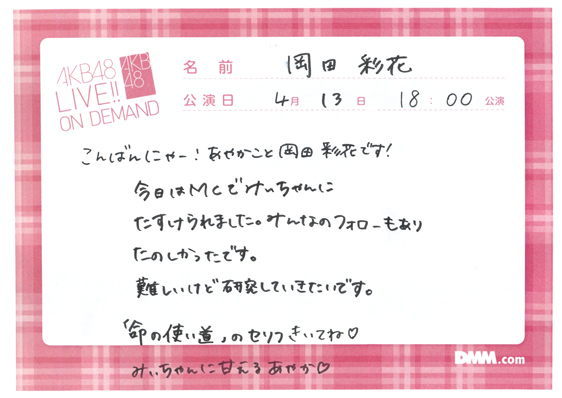 AKB48
LIVE!!
ON DEMAND
AKB
48
名前 岡田 彩花
公演日 4月 13日 18:00 公演
こんばんにゃー!あやかこと岡田彩花です!
今日はMCでみぃちゃんに
たすけられました。みんなのフォローもあり
たのしかったです。
難しいけど研究していきたいです。
「命の使い道」のセリフきいてね♡
みぃちゃんに甘えるあやか♡
DMM.com